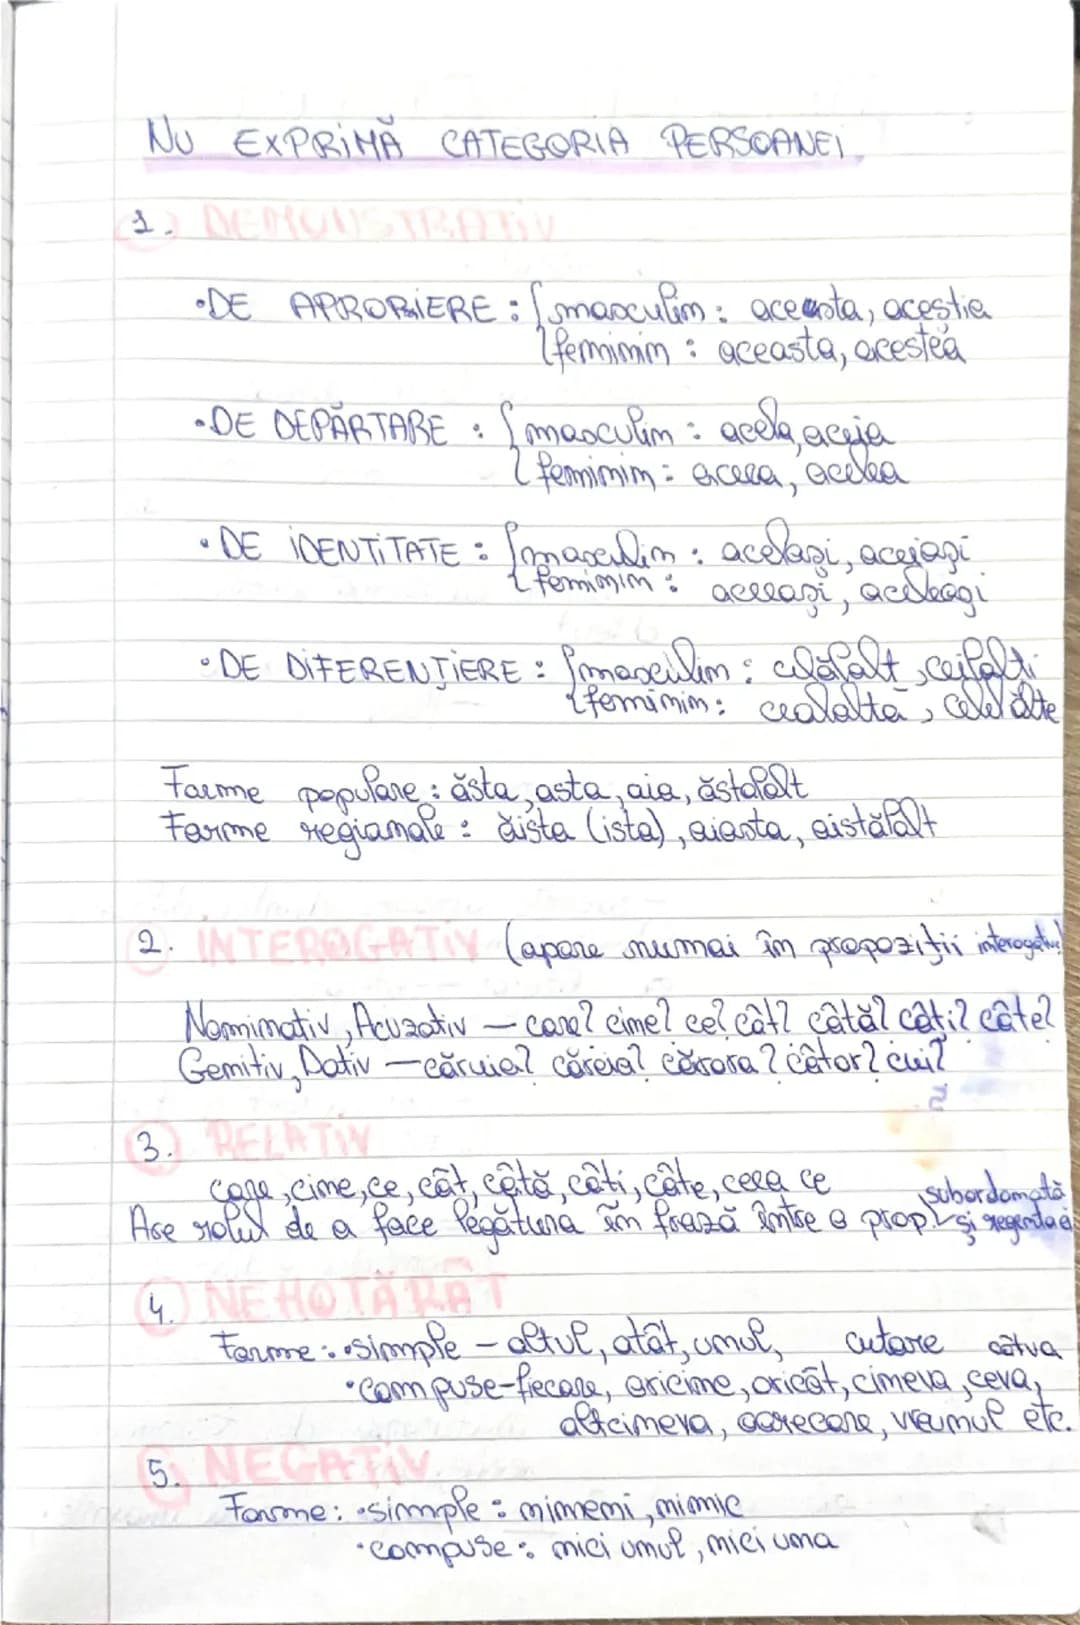 NU EXPRIMĂ CATEGORIA PERSOANEI
1. DEMONSTRATIV
•DE APROPIERE : { masculin : aceasta, aceștia
feminin : aceasta, acestea
•DE DEPĂRTARE : { masculin : acela, aceia
feminin : aceea, acelea
•DE IDENTITATE : { masculin : același, aceiași
feminin : aceeași, aceleași
•DE DIFERENȚIERE : { masculin : celălalt, ceilalți
feminin : cealaltă, celelalte
Forme populare : ăsta, asta, aia, ăstalalt
Forme regionale : ăista (ista), aiasta, aistălalt
2. INTEROGATIV (apare numai în propoziții interogative)
Nominativ, Acuzativ – care? cine? ce? cât? câtă? câți? câte?
Genitiv, Dativ – căruia? căreia? cărora? câtor? cui?
3. RELATIV
care, cine, ce, cât, câtă, câți, câte, ceea ce
subordonată
Are rolul de a face legătura în frază între o prop. și regenta ei
4. NEHOTĂRÂT
Forme: •simple – altul, atât, unul, cutare câtva
•compuse – fiecare, oricine, oricât, cineva, ceva,
altcineva, oarecare, vreunul etc.
5. NEGATIV
Forme: •simple : nimeni, nimic
•compuse : nici unul, nici una